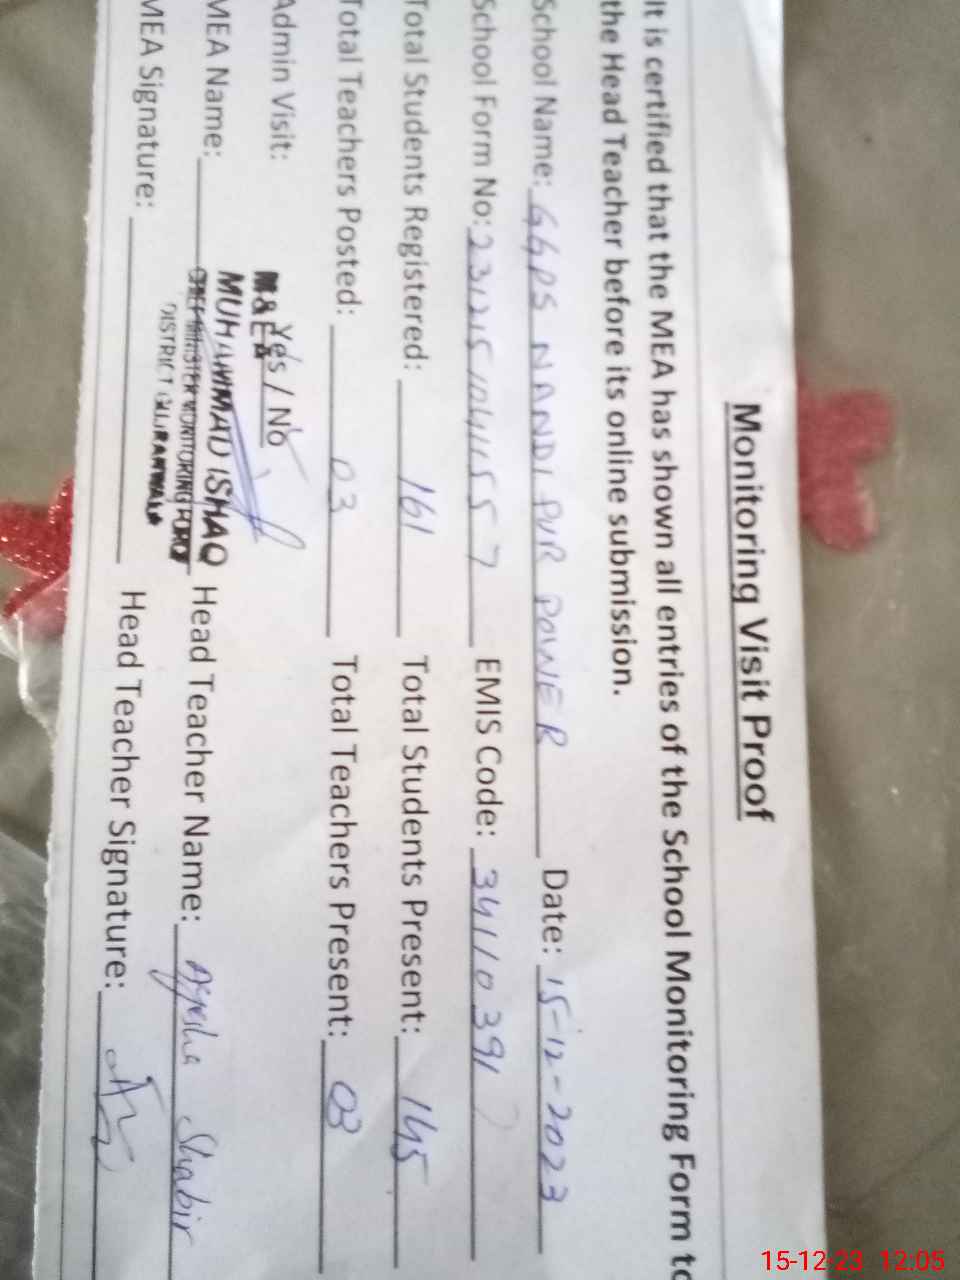 Monitoring Visit Proof
It is certified that the MEA has shown all entries of the School Monitoring Form to
the Head Teacher before its online submission.
School Name: GGPS NANDI PUR POWER Date: 15-12-2023
School Form No: 231215 EMIS Code: 34110391
Total Students Registered: 161 Total Students Present: 145
Total Teachers Posted: 03 Total Teachers Present: 03
Admin Visit: Yes / No
M & EA
MUHAMMAD ISHAQ
MEA Name: CHIEF MINISTER MONITORING FORCE Head Teacher Name: Ayesha Shabir
DISTRICT GUJRANWALA
MEA Signature: Head Teacher Signature:
15-12-23 12:05